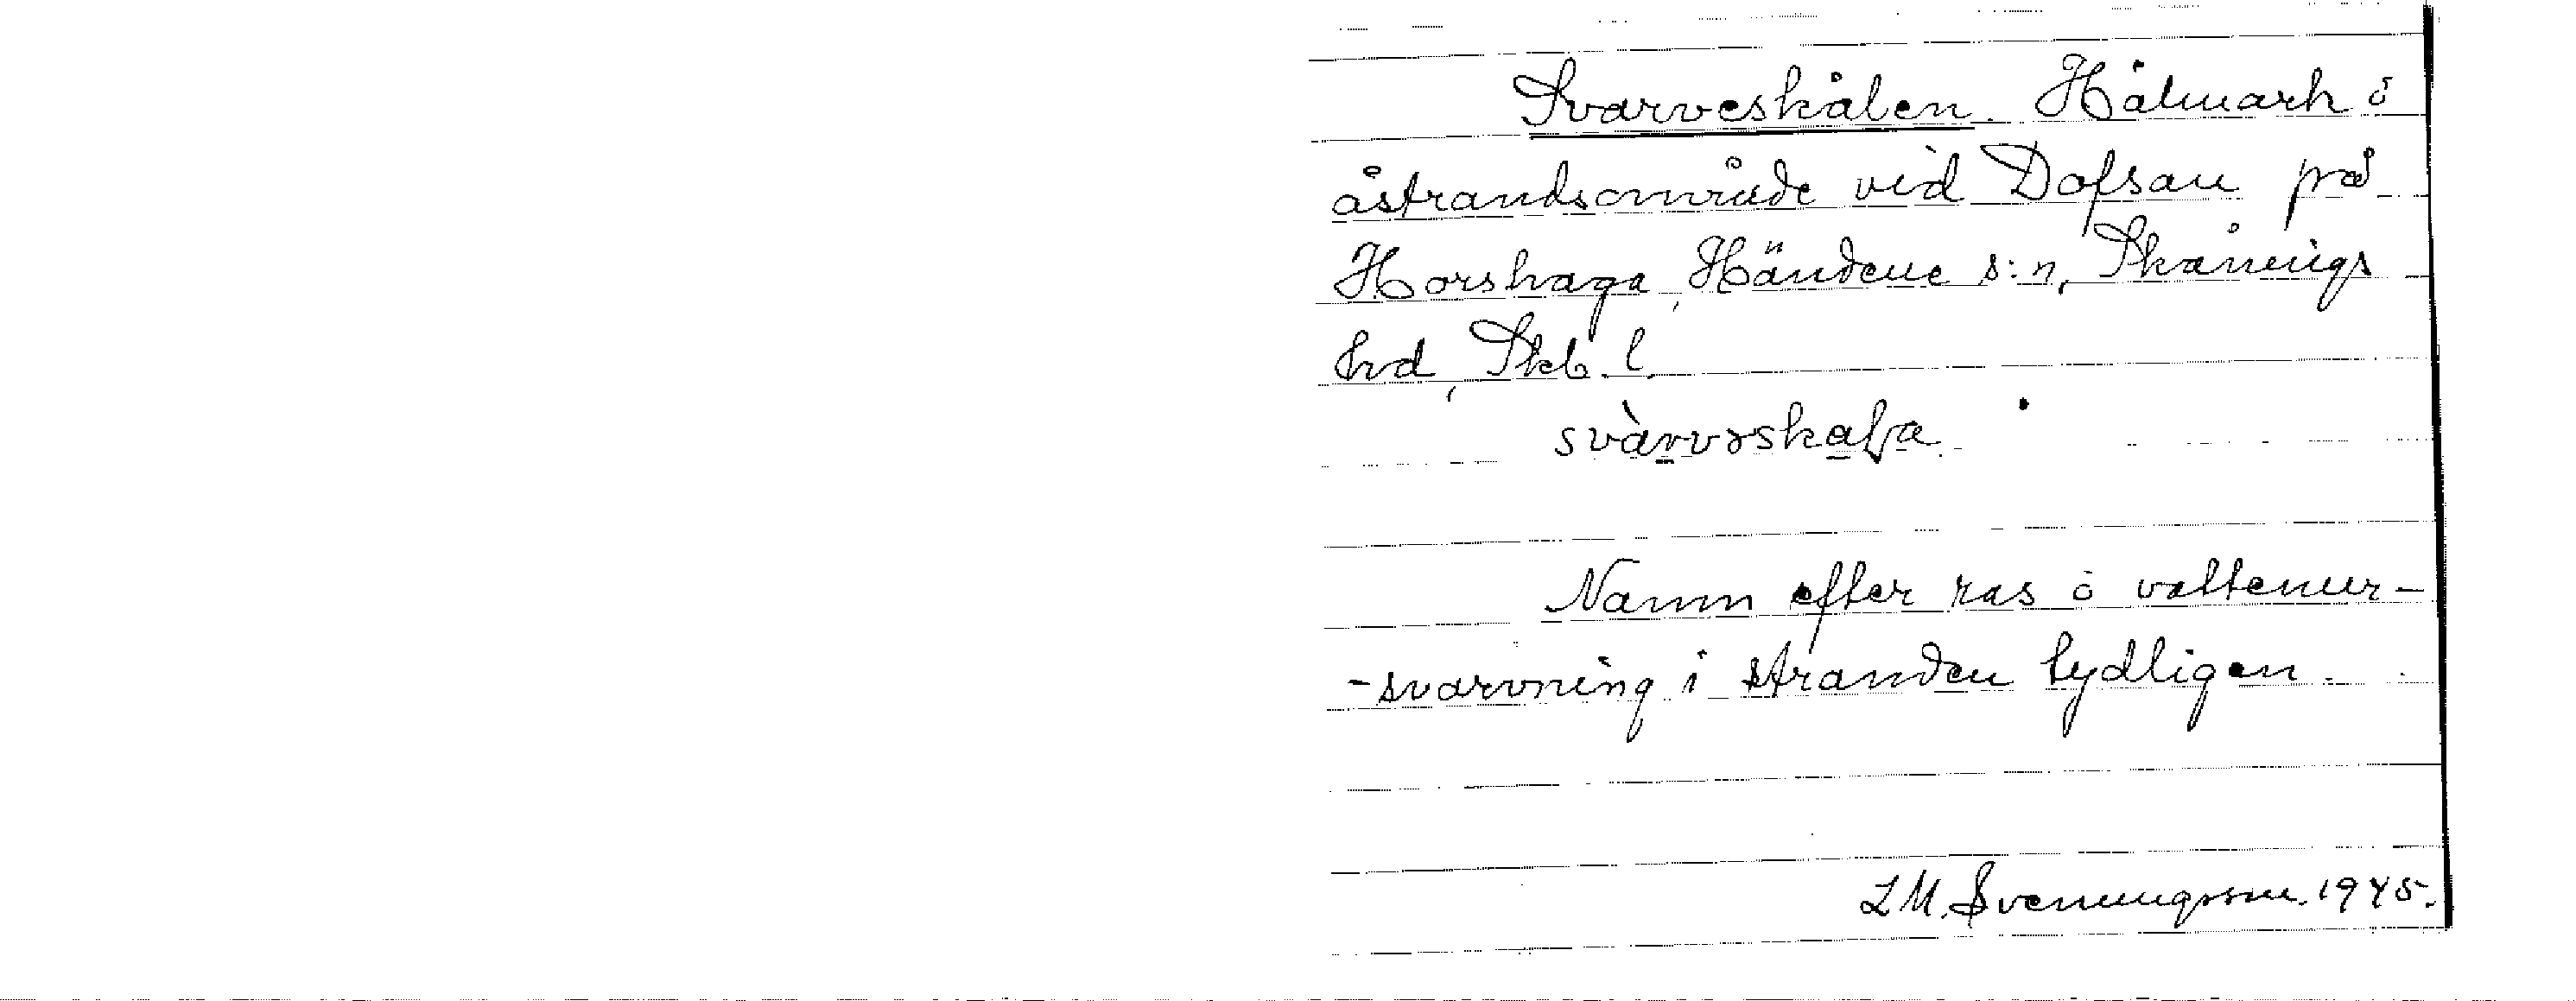 Svarveskålen. Hålmark å
åstrandsområde vid Dofsan på
Horshaga, Händene s:n, Skånings
hrd, Skb. l.
svàrvəskaɫa.
Namn efter ras o vattenur-
-svarvning i stranden tydligen.
L M. Svenungsson. 1945.